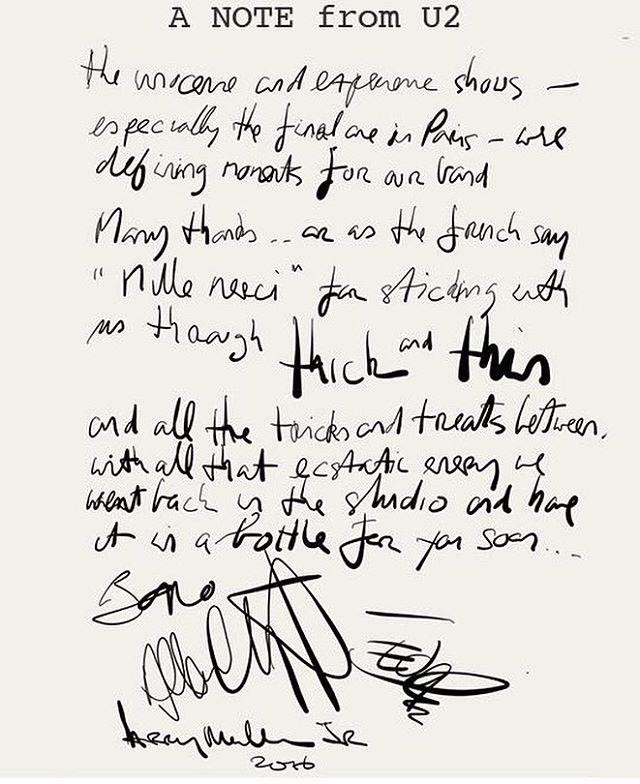 A NOTE from U2
the innocence and experience shows —
especially the final one in Paris – were
defining moments for our band
Many thanks.. or as the french say
"Mille merci" for sticking with
us through thick and thin
and all the tricks and treats between.
with all that ecstatic energy we
went back in the studio and have
it in a bottle for you soon...
Bono
Adam
Edge
Larry Mullen JR
2016